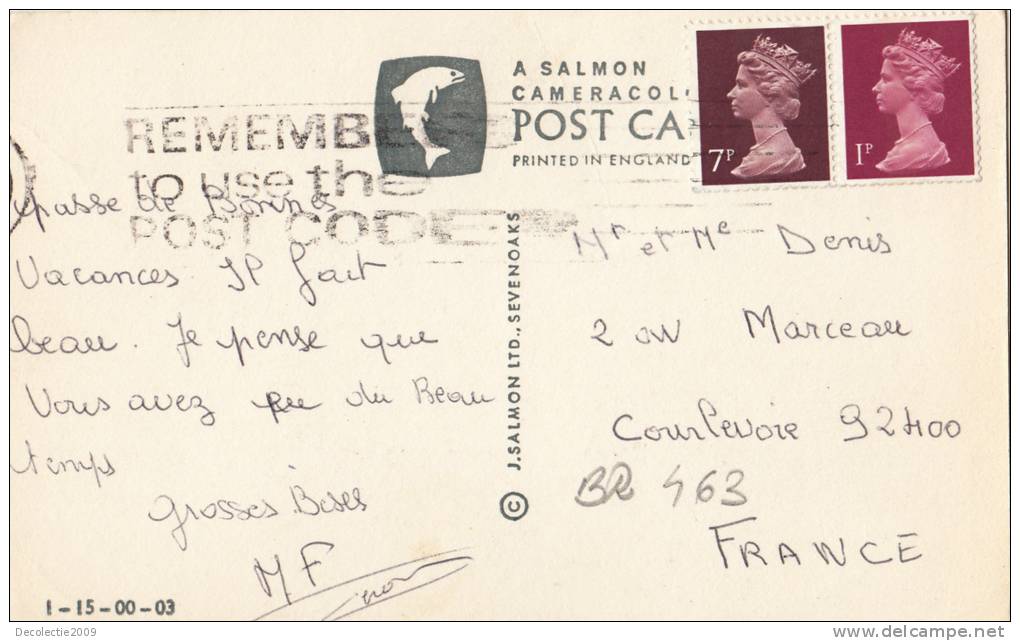 A SALMON
CAMERACOL
POST CA
PRINTED IN ENGLAND
7P
1P
REMEMBER
to use the
POST CODE
passe de Bonnes
Vacances. Il fait
beau. Je pense que
Vous avez eu du Beau
temps
Grosses Bises
MF
1-15-00-03
© J.SALMON LTD., SEVENOAKS
Mr et Me Denis
2 av Marceau
Courbevoie 92400
BR 463
FRANCE
Decolectie2009
www.delcampe.net